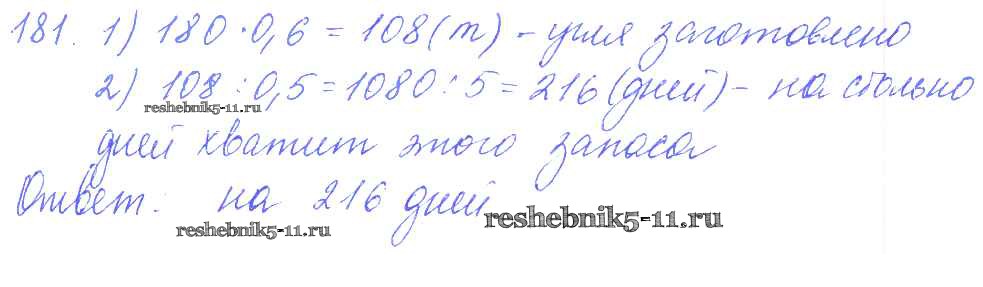 181. 1) 180 · 0,6 = 108 (т) - угля заготовлено
2) 108 : 0,5 = 1080 : 5 = 216 (дней) - на столько
reshebnik5-11.ru
дней хватит этого запаса
Ответ: на 216 дней
reshebnik5-11.ru
reshebnik5-11.ru